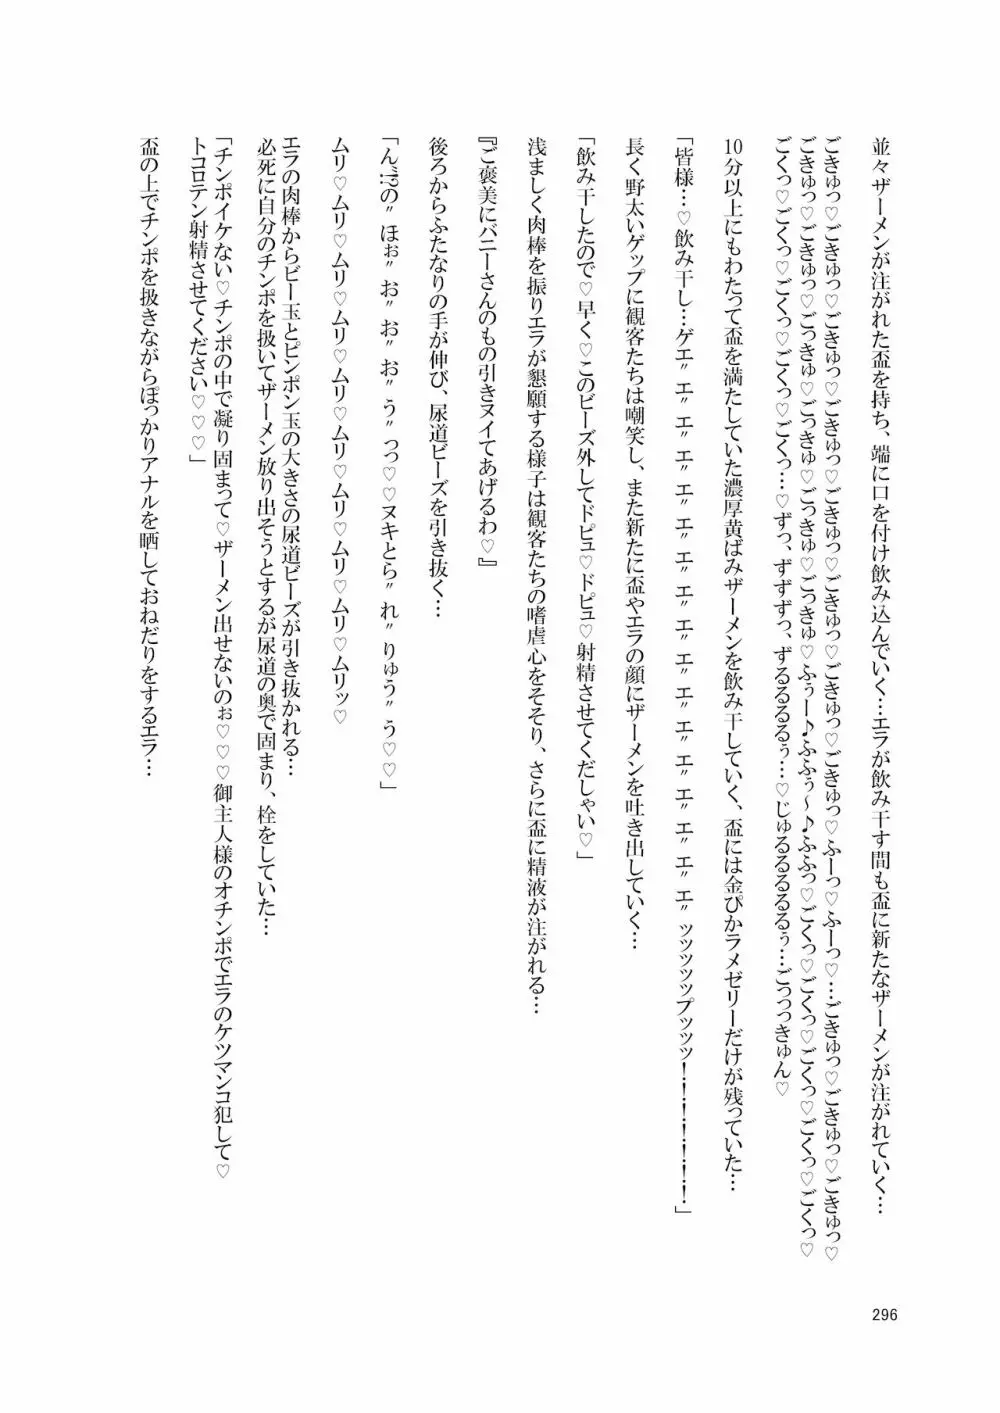 並々ザーメンが注がれた盃を持ち、端に口を付け飲み込んでいく…エラが飲み干す間も盃に新たなザーメンが注がれていく…
ごきゅっ♡ごきゅっ♡ごきゅっ♡ごきゅっ♡ごきゅっ♡ごきゅっ♡ごきゅっ♡ごきゅっ♡ふーっ♡ふーっ♡…ごきゅっ♡ごきゅっ♡ごきゅっ♡
ごきゅっ♡ごきゅっ♡ごっきゅ♡ごっきゅ♡ごっきゅ♡ごっきゅ♡ふぅー♪ふふぅ～♪ふふっ♡ごくっ♡ごくっ♡ごくっ♡ごくっ♡ごくっ♡
ごくっ♡ごくっ♡ごくっ♡ごくっ♡ごくっ…♡ずっ、ずずずっ、ずるるるるぅ…♡じゅるるるるるぅ…ごっっっきゅん♡
10分以上にもわたって盃を満たしていた濃厚黄ばみザーメンを飲み干していく、盃には金ぴかラメゼリーだけが残っていた…
「皆様…♡飲み干し…ゲエ〟エ〟エ〟エ〟エ〟エ〟エ〟エ〟エ〟エ〟エ〟エ〟エ〟エ〟エ〟エ〟ッッッップッッッ！！！！！！！！」
長く野太いゲップに観客たちは嘲笑し、また新たに盃やエラの顔にザーメンを吐き出していく…
「飲み干したので♡早く♡このビーズ外してドピュ♡ドピュ♡射精させてくだしゃい♡」
浅ましく肉棒を振りエラが懇願する様子は観客たちの嗜虐心をそそり、さらに盃に精液が注がれる…
『ご褒美にバニーさんのもの引きヌイてあげるわ♡』
後ろからふたなりの手が伸び、尿道ビーズを引き抜く…
「ん〟!?の〟ほぉ〟お〟お〟お〟う〟っっ♡♡ヌキとら〟れ〟りゅう〟う♡♡」
ムリ♡ムリ♡ムリ♡ムリ♡ムリ♡ムリ♡ムリ♡ムリ♡ムリ♡ムリッ♡
エラの肉棒からビー玉とピンポン玉の大きさの尿道ビーズが引き抜かれる…
必死に自分のチンポを扱いてザーメン放り出そうとするが尿道の奥で固まり、栓をしていた…
「チンポイケない♡チンポの中で凝り固まって♡ザーメン出せないのぉ♡♡♡御主人様のオチンポでエラのケツマンコ犯して♡
トコロテン射精させてください♡♡♡」
盃の上でチンポを扱きながらぽっかりアナルを晒しておねだりをするエラ…
296